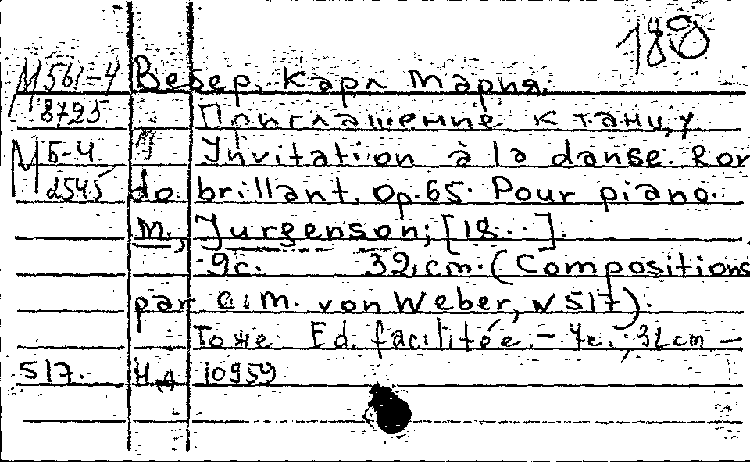 188
М561-4 Вебер, Карл Мария.
8795 Приглашение к танцу
М Б-4 Invitation à la danse. Ron
2545 do brillant. Op. 65. Pour piano.
М., Jurgenson; [18..].
9с. 32 cm. (Compositions
par C.M. von Weber, N 517).
То же Ed. facilitée. – 7с.; 32 cm –
517. Н.д 10959